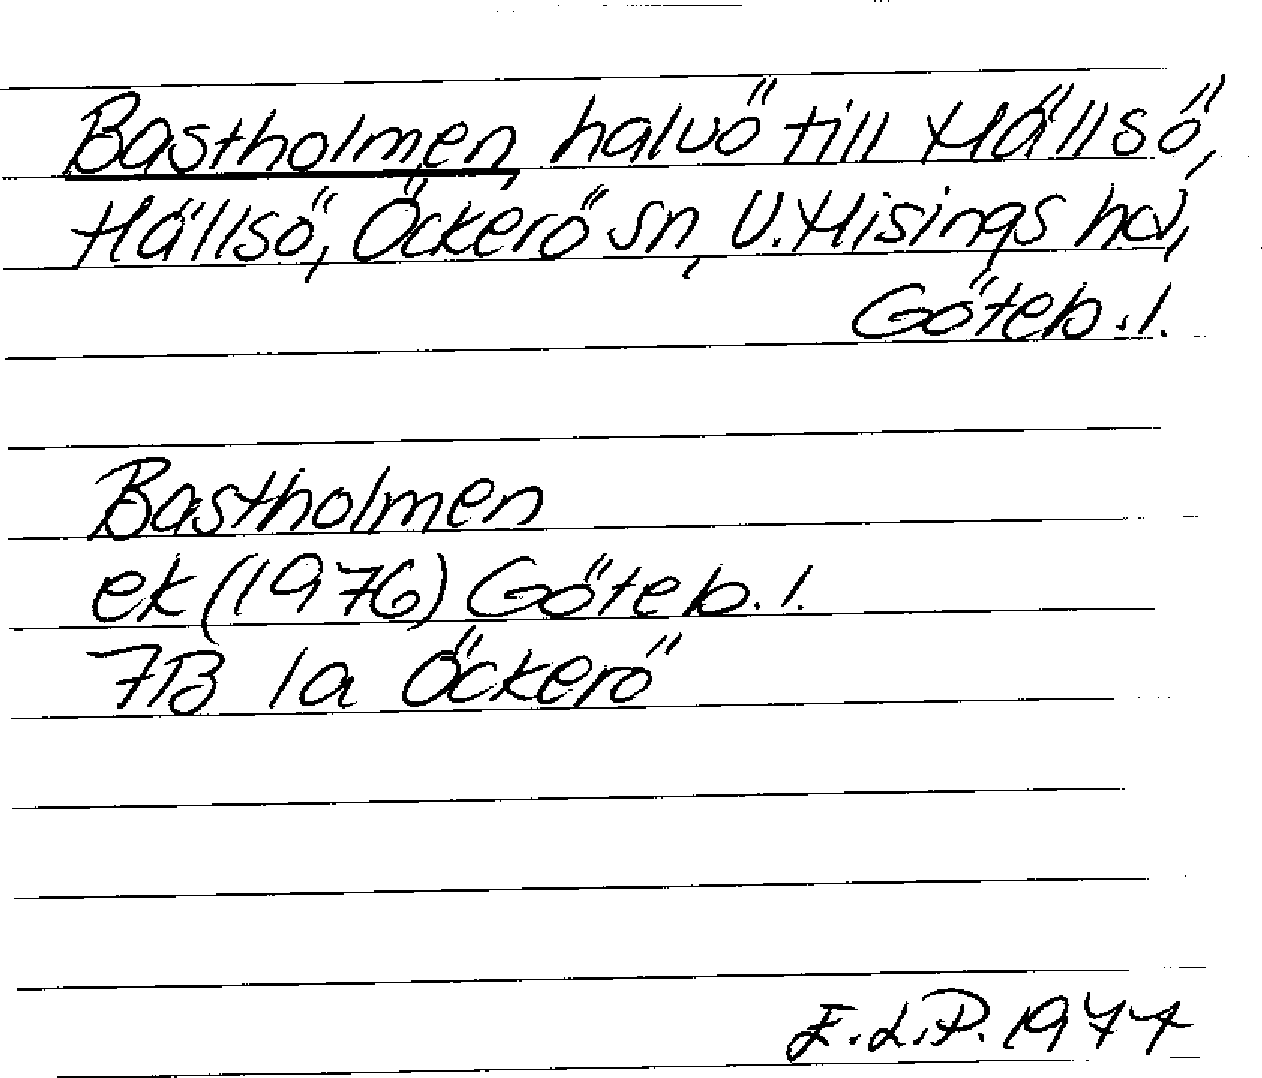 Bastholmen, halvö till Hällsö,
Hällsö, Öckerö sn, V. Hisings hd,
Göteb. l.
Bastholmen
ek (1976) Göteb. l.
7B 1a Öckerö
E.L.P. 1977